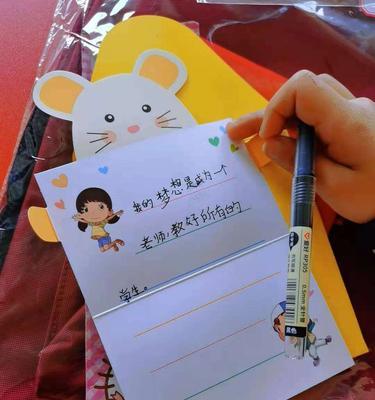 我的梦想是成为一个
老师,教好所有的
学生。
爱好 AP305
0.5mm 全针管
黑色